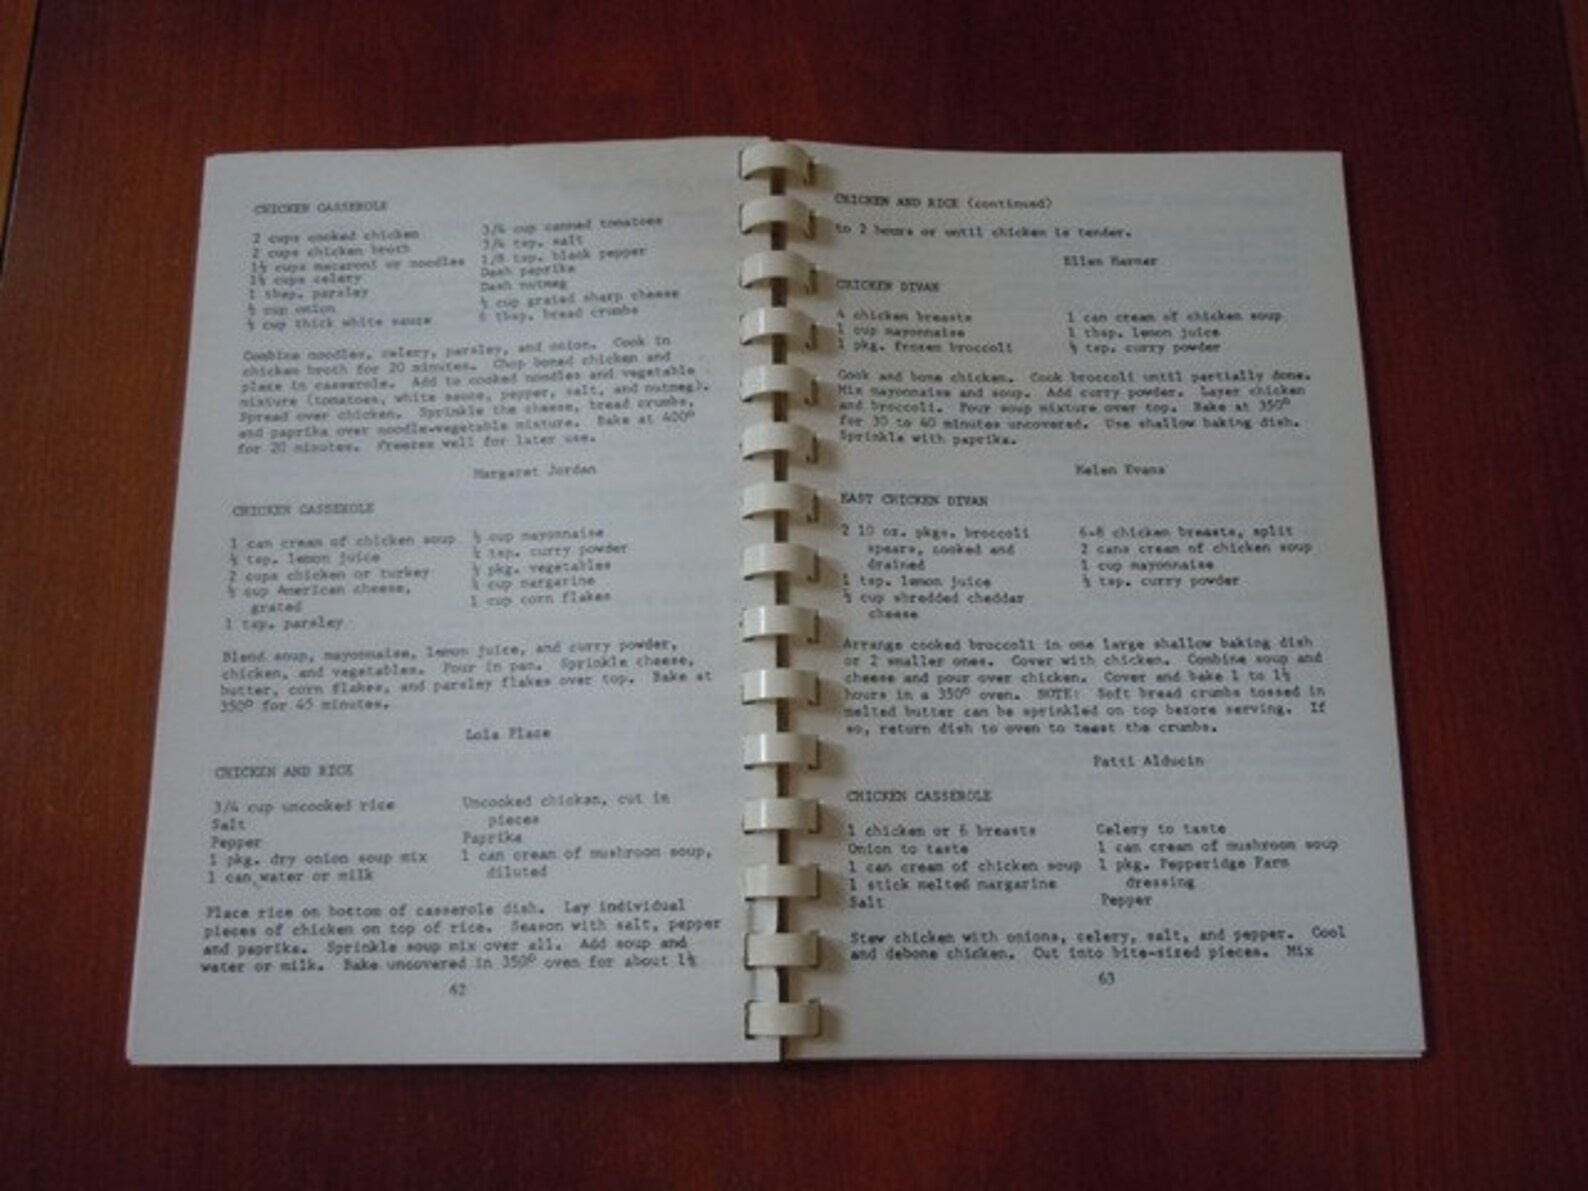 CHICKEN CASSEROLE
2 cups cooked chicken
2 cups chicken broth
1½ cups macaroni or noodles
1½ cups celery
1 tbsp. parsley
½ cup onion
½ cup thick white sauce
3/4 cup canned tomatoes
3/4 tsp. salt
1/8 tsp. black pepper
Dash paprika
Dash nutmeg
½ cup grated sharp cheese
6 tbsp. bread crumbs
Combine noodles, celery, parsley, and onion. Cook in
chicken broth for 20 minutes. Chop boned chicken and
place in casserole. Add to cooked noodles and vegetable
mixture (tomatoes, white sauce, pepper, salt, and nutmeg).
Spread over chicken. Sprinkle the cheese, bread crumbs,
and paprika over noodle-vegetable mixture. Bake at 400°
for 20 minutes. Freezes well for later use.
Margaret Jordan
CHICKEN CASSEROLE
1 can cream of chicken soup
½ tsp. lemon juice
2 cups chicken or turkey
½ cup American cheese,
grated
1 tsp. parsley
½ cup mayonnaise
tsp. curry powder
pkg. vegetables
cup margarine
1 cup corn flakes
Blend soup, mayonnaise, lemon juice, and curry powder,
chicken, and vegetables. Pour in pan. Sprinkle cheese,
butter, corn flakes, and parsley flakes over top. Bake at
350° for 45 minutes.
Lola Place
CHICKEN AND RICE
3/4 cup uncooked rice
Salt
Pepper
1 pkg. dry onion soup mix
1 can water or milk
Uncooked chicken, cut in
pieces
Paprika
1 can cream of mushroom soup,
diluted
Place rice on bottom of casserole dish. Lay individual
pieces of chicken on top of rice. Season with salt, pepper
and paprika. Sprinkle soup mix over all. Add soup and
water or milk. Bake uncovered in 350° oven for about 1½
62
CHICKEN AND RICE (continued)
to 2 hours or until chicken is tender.
Ellen Harner
CHICKEN DIVAN
4 chicken breasts
1 cup mayonnaise
1 pkg. frozen broccoli
1 can cream of chicken soup
1 tbsp. lemon juice
½ tsp. curry powder
Cook and bone chicken. Cook broccoli until partially done.
Mix mayonnaise and soup. Add curry powder. Layer chicken
and broccoli. Pour soup mixture over top. Bake at 350°
for 30 to 40 minutes uncovered. Use shallow baking dish.
Sprinkle with paprika.
Helen Evans
EAST CHICKEN DIVAN
2 10 oz. pkgs. broccoli
spears, cooked and
drained
1 tsp. lemon juice
½ cup shredded cheddar
cheese
6-8 chicken breasts, split
2 cans cream of chicken soup
1 cup mayonnaise
½ tsp. curry powder
Arrange cooked broccoli in one large shallow baking dish
or 2 smaller ones. Cover with chicken. Combine soup and
cheese and pour over chicken. Cover and bake 1 to 1½
hours in a 350° oven. NOTE: Soft bread crumbs tossed in
melted butter can be sprinkled on top before serving. If
so, return dish to oven to toast the crumbs.
Patti Alducin
CHICKEN CASSEROLE
1 chicken or 6 breasts
Onion to taste
1 can cream of chicken soup
1 stick melted margarine
Salt
Celery to taste
1 can cream of mushroom soup
1 pkg. Pepperidge Farm
dressing
Pepper
Stew chicken with onions, celery, salt, and pepper. Cool
and debone chicken. Cut into bite-sized pieces. Mix
63